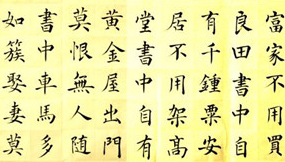 富家不用買
良田書中自
有千鍾粟安
居不用架髙
堂書中自有
黃金屋出門
莫恨無人隨
書中車馬多
如簇娶妻莫